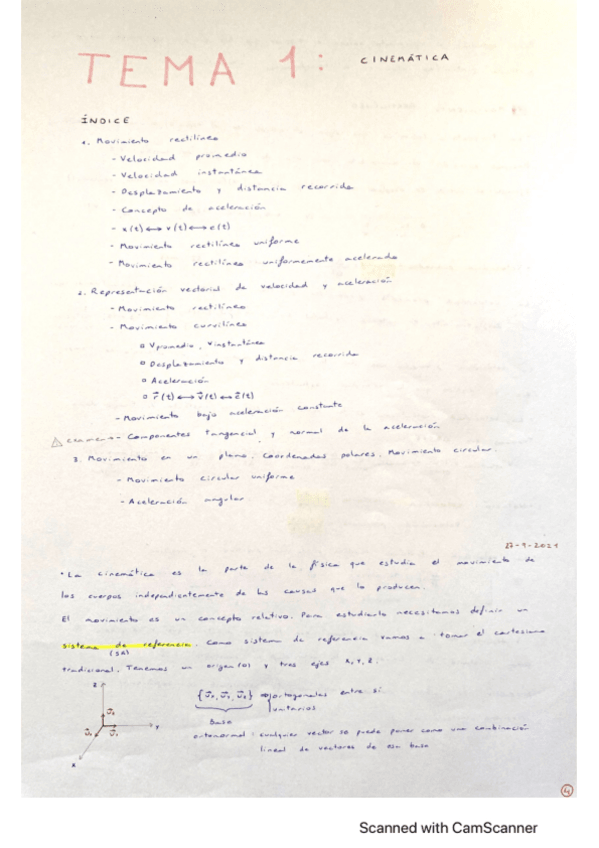 TEMA 1: CINEMÁTICA
ÍNDICE
1. Movimiento rectilíneo
- Velocidad promedio
- Velocidad instantánea
- Desplazamiento y distancia recorrida
- Concepto de aceleración
- x(t) ⟷ v(t) ⟷ a(t)
- Movimiento rectilíneo uniforme
- Movimiento rectilíneo uniformemente acelerado
2. Representación vectorial de velocidad y aceleración
- Movimiento rectilíneo
- Movimiento curvilíneo
o Vpromedio, Vinstantánea
o Desplazamiento y distancia recorrida
o Aceleración
o r⃗(t) ⟷ v⃗(t) ⟷ a⃗(t)
- Movimiento bajo aceleración constante
- Componentes tangencial y normal de la aceleración
3. Movimiento en un plano. Coordenadas polares. Movimiento circular.
- Movimiento circular uniforme
- Aceleración angular
27-9-2021
· La cinemática es la parte de la física que estudia el movimiento de
los cuerpos independientemente de las causas que lo producen.
El movimiento es un concepto relativo. Para estudiarlo necesitamos definir un
sistema de referencia. Como sistema de referencia vamos a tomar el cartesiano
(SR)
tradicional. Tenemos un origen (O) y tres ejes X, Y, Z.
z
y
x
ortogonales entre sí
unitarios
Base
ortonormal: cualquier vector se puede poner como una combinación
lineal de vectores de esa base
4
Scanned with CamScanner